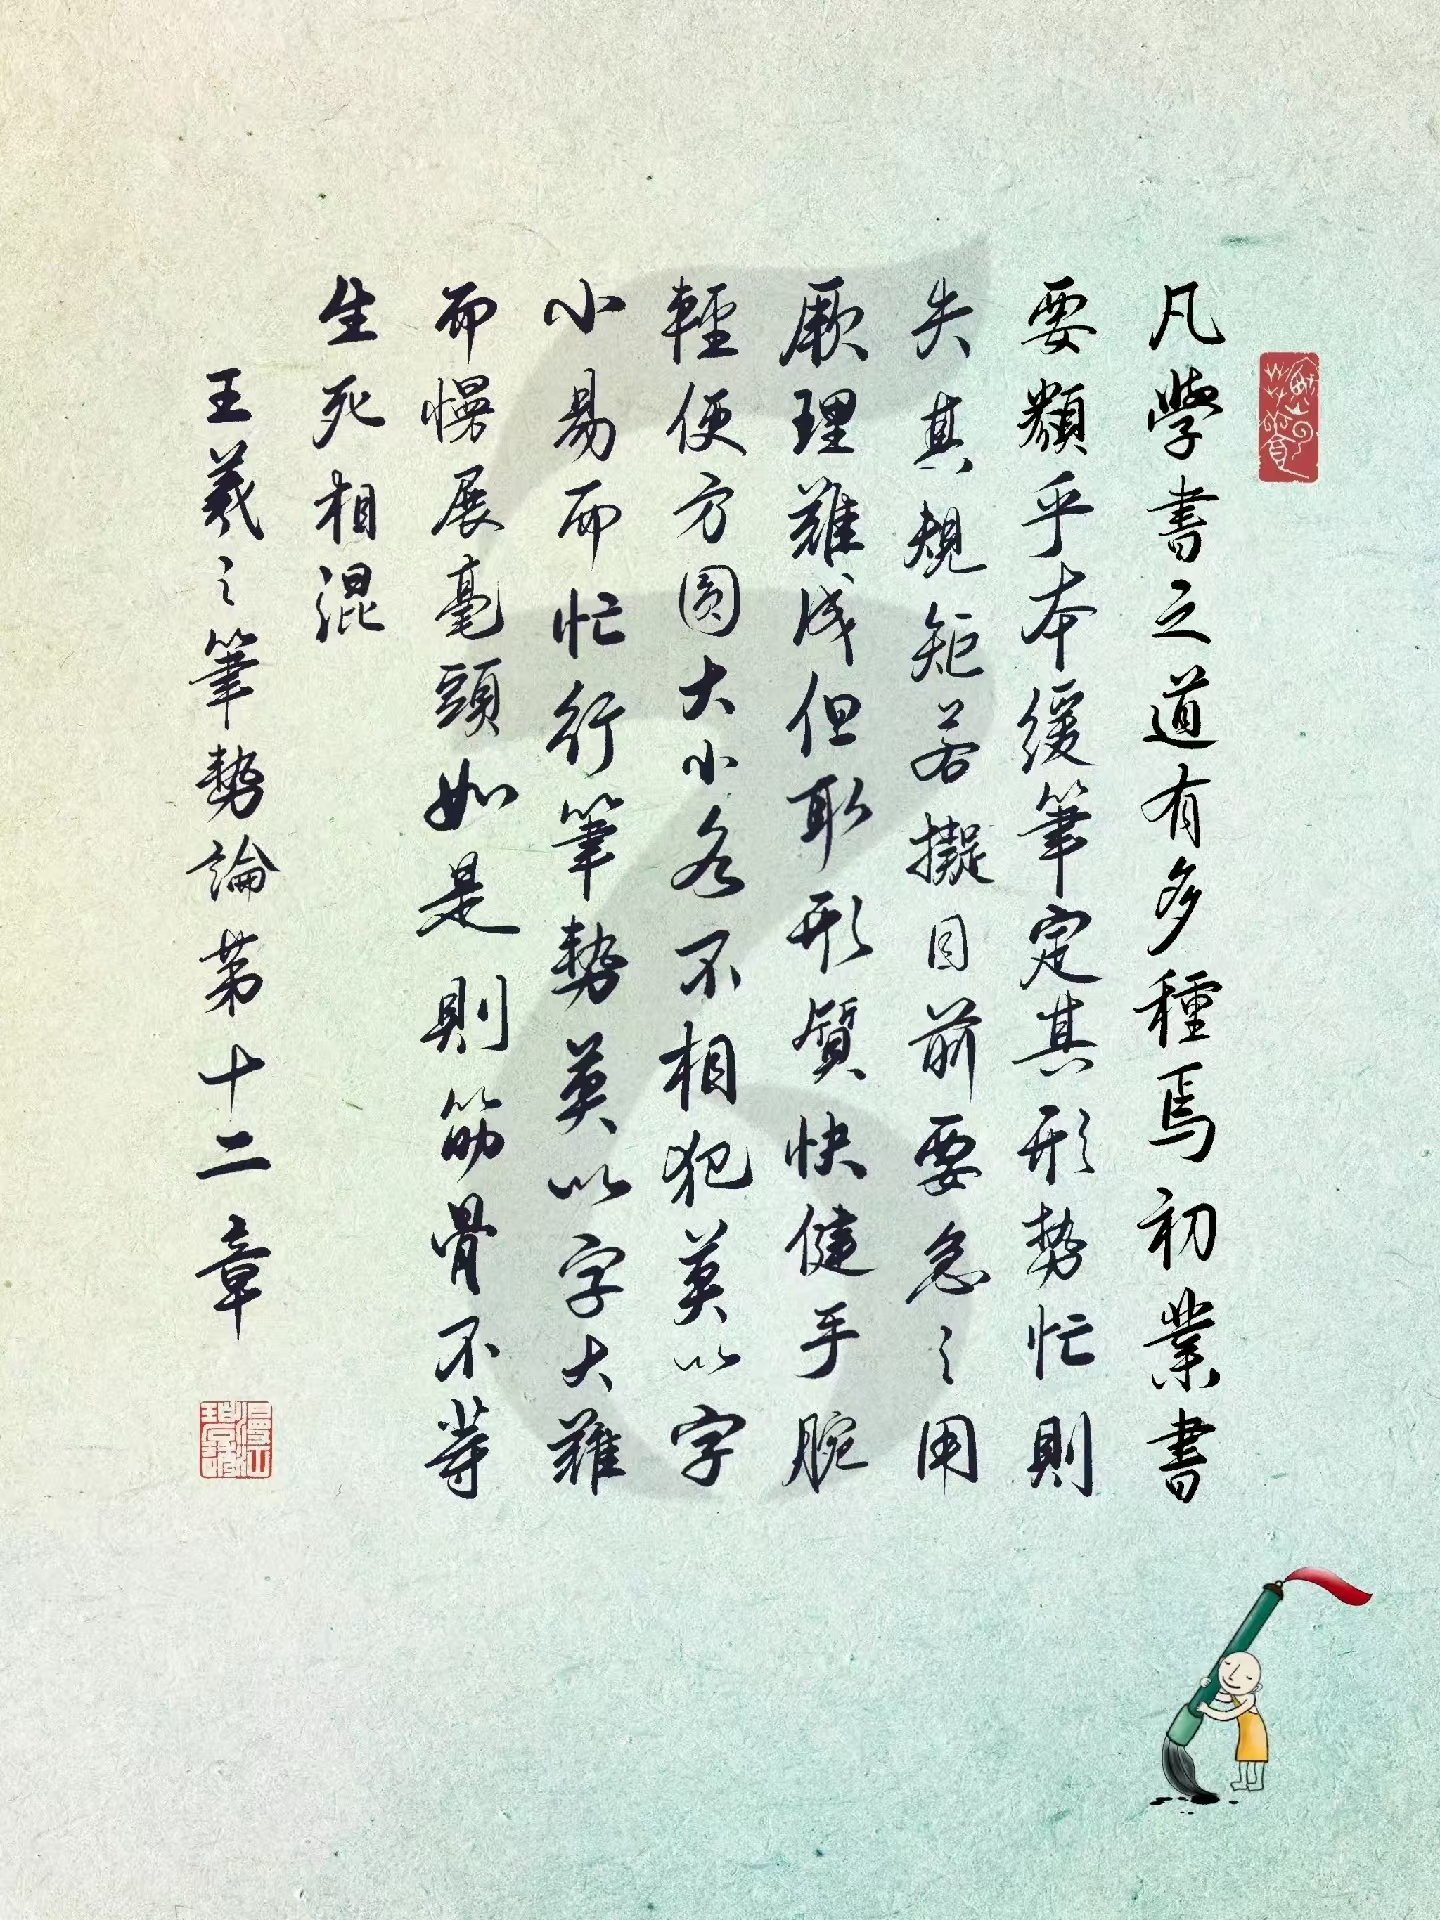 凡學書之道有多種焉初業書
要類乎本緩筆定其形勢忙則
失其規矩若擬目前要急之用
厥理難成但取形質快健手腕
輕便方圓大小各不相犯莫以字
小易而忙行筆勢莫以字大難
而慢展毫頭如是則筋骨不等
生死相混
王羲之筆勢論第十二章